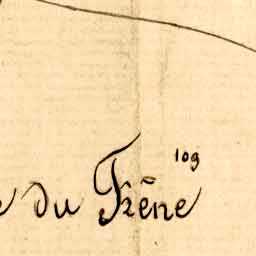 109
e du Frêne